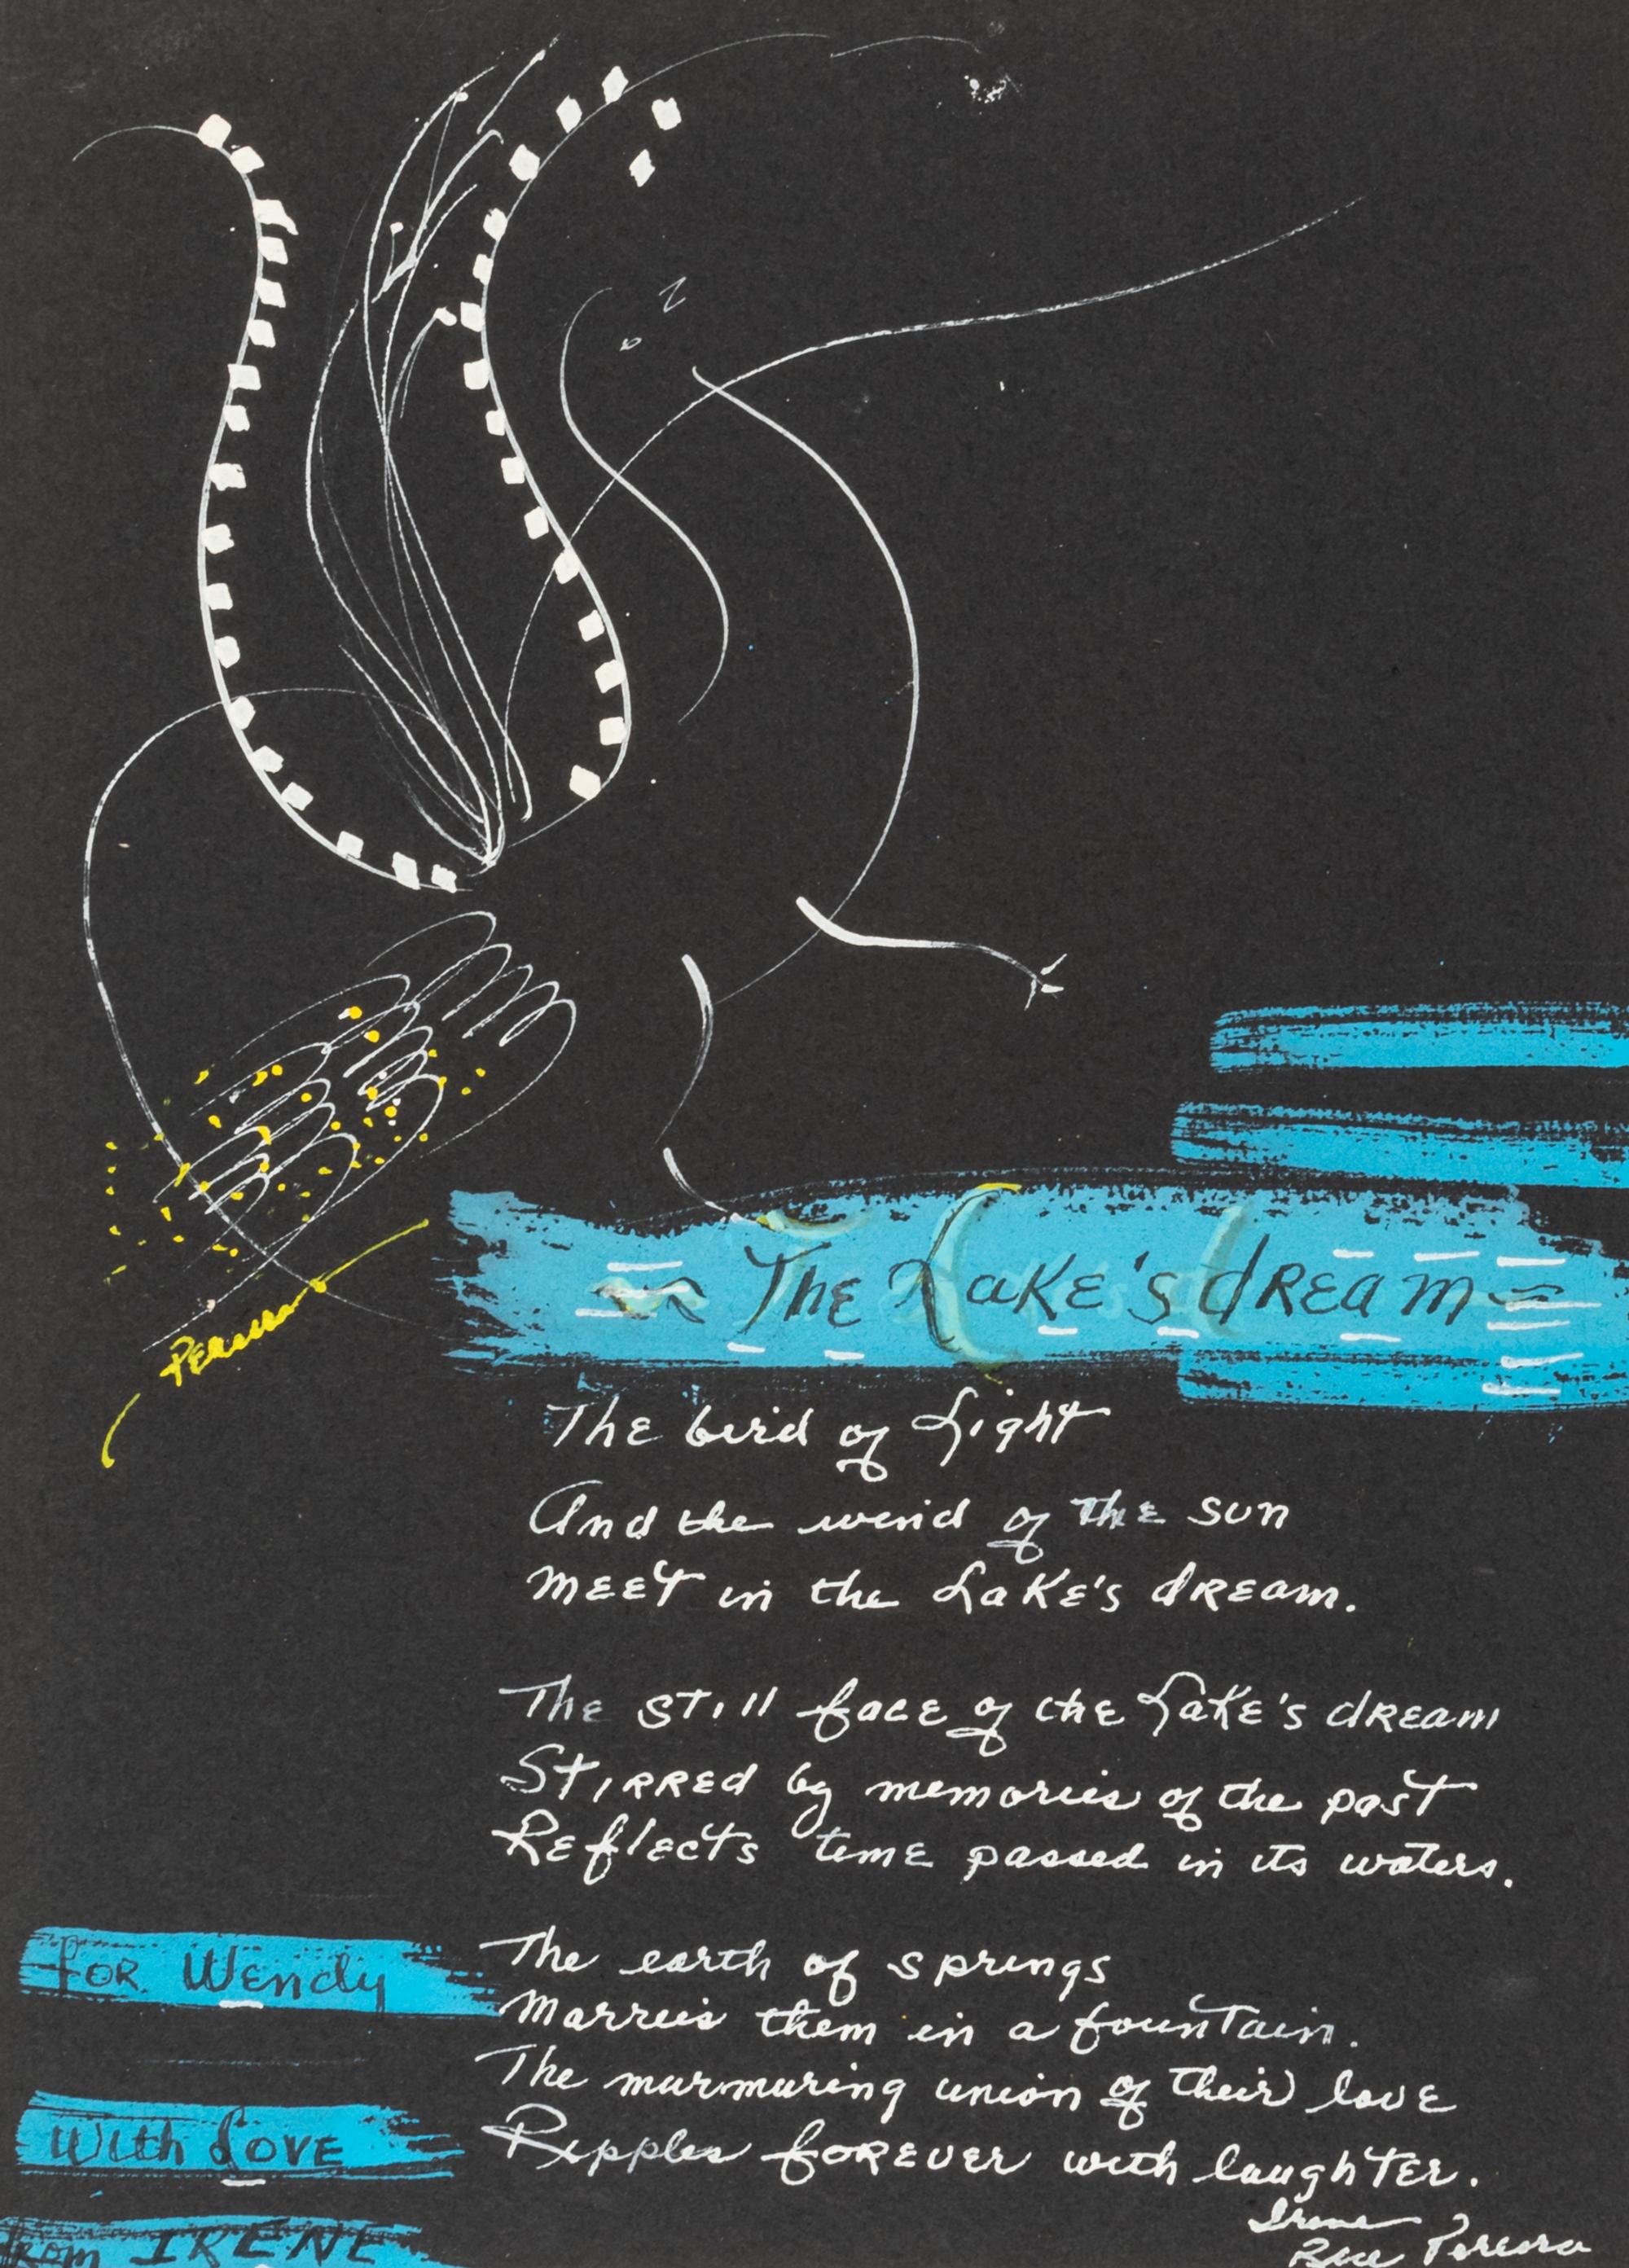 Pereira
~ The Lake's dream ~
The bird of Light
And the wind of the sun
meet in the Lake's dream.
The still face of the Lake's dream
Stirred by memories of the past
Reflects time passed in its waters.
The earth of springs
Marries them in a fountain.
The murmuring union of their love
Ripples forever with laughter.
Irene
Rice Pereira
for Wendy
with Love
from IRENE